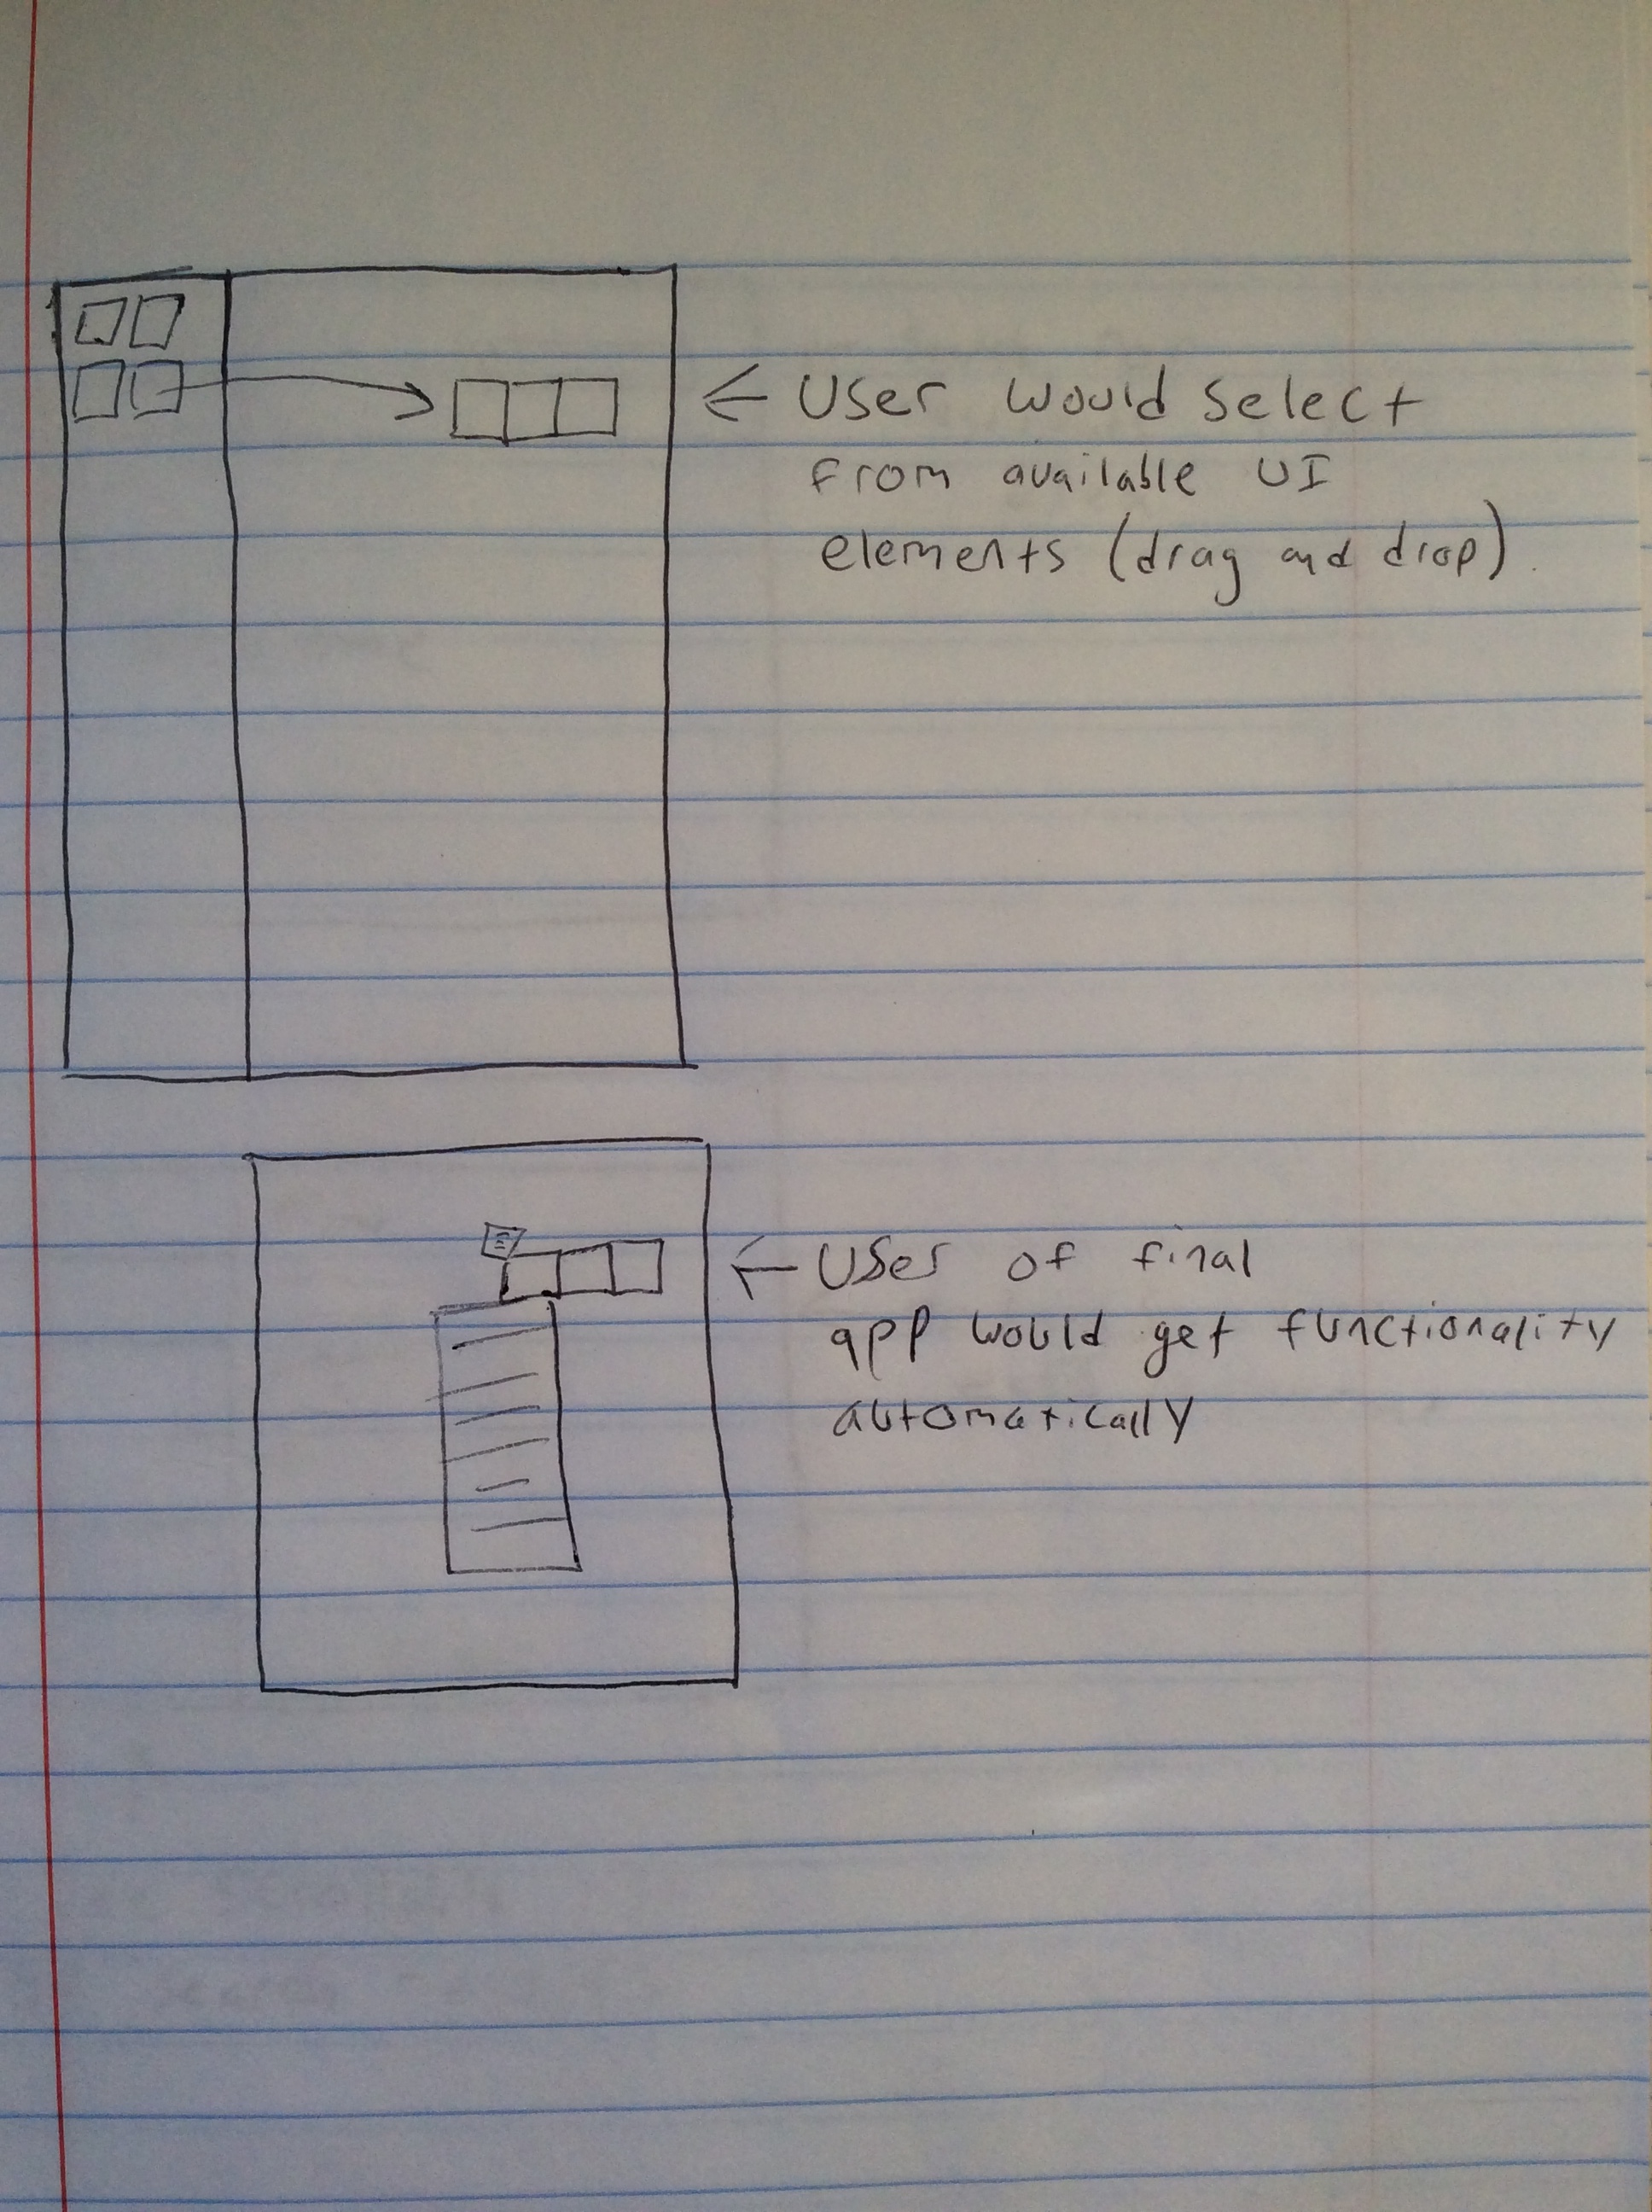 ← User would select
from available UI
elements (drag and drop).
← User of final
app would get functionality
automatically